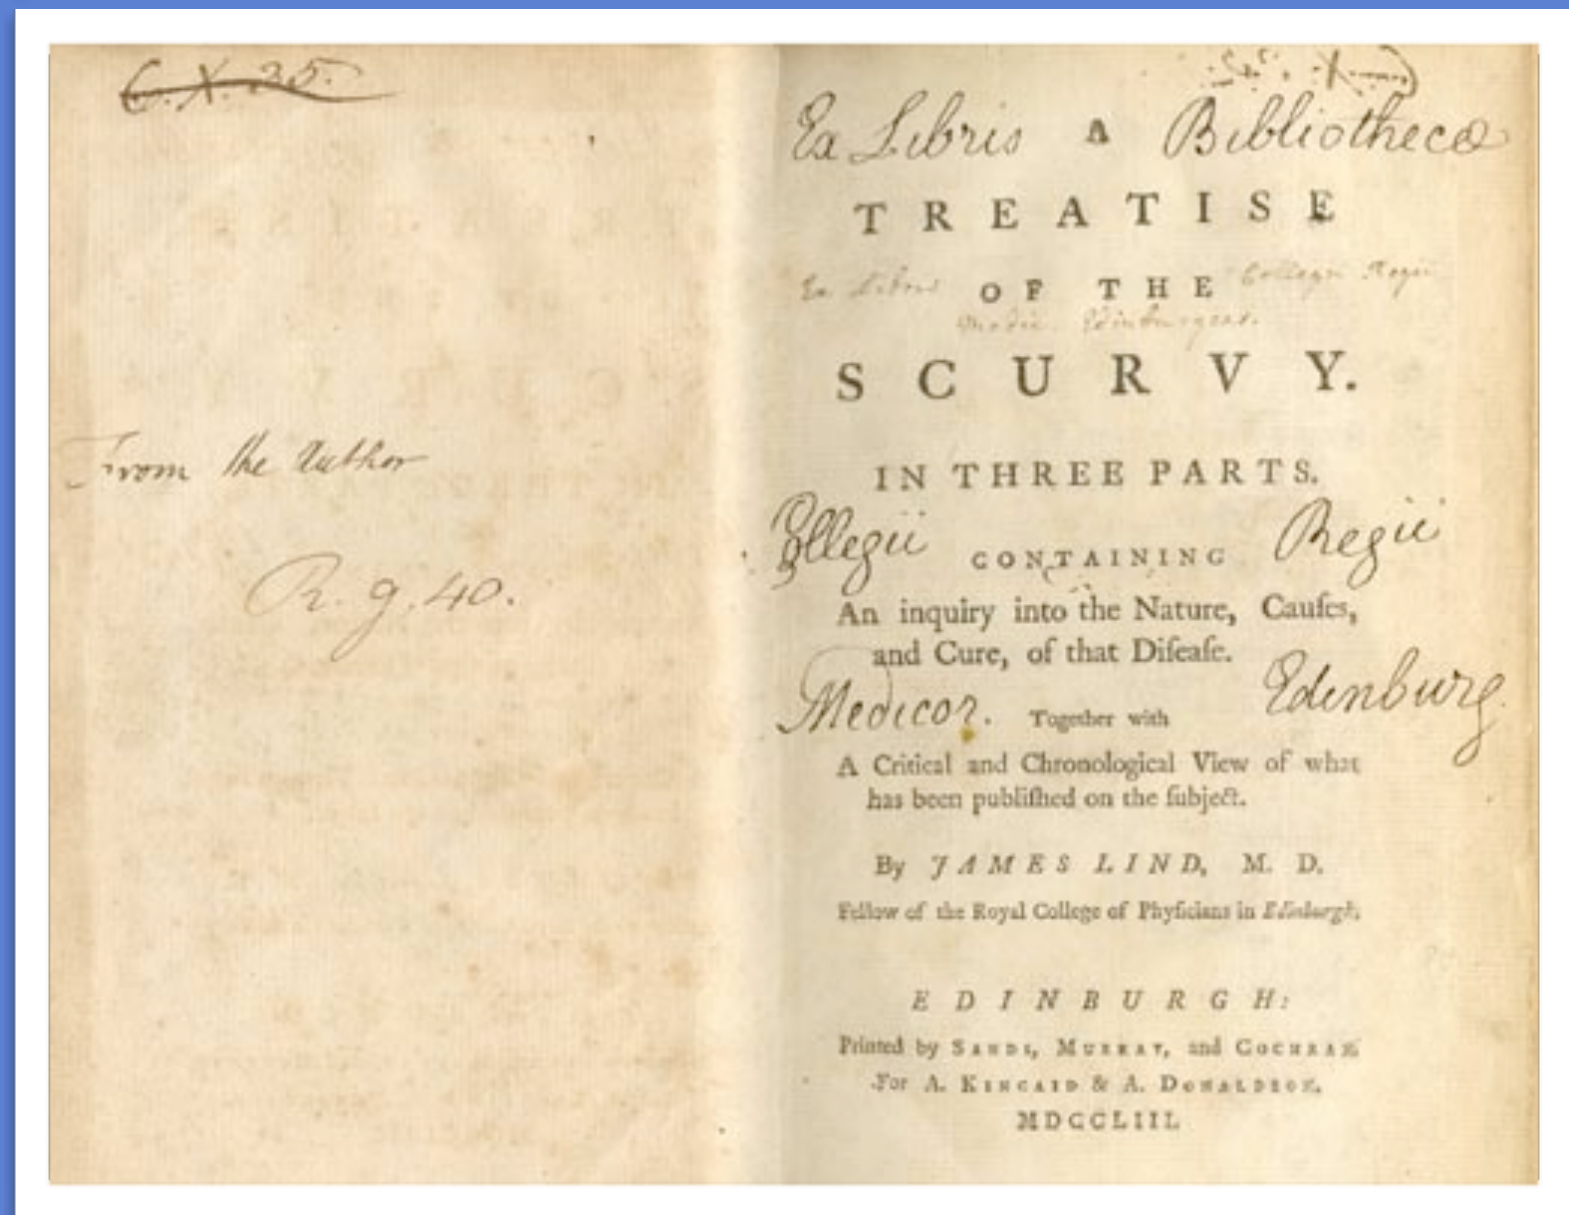 C. X. 25.
From the Author
R. g. 40.
Ex Libris A Bibliothecæ
TREATISE
Ex Libris OF THE Collegii Regii
Medic. Edinburgens.
SCURVY.
IN THREE PARTS.
Collegii CONTAINING Regii
An inquiry into the Nature, Cauſes,
and Cure, of that Diſeaſe.
Medicor. Together with Edinburg.
A Critical and Chronological View of what
has been publiſhed on the ſubject.
By JAMES LIND, M. D.
Fellow of the Royal College of Phyſicians in Edinburgh.
EDINBURGH:
Printed by SANDS, MURRAY, and COCHRAN.
For A. KINCAID & A. DONALDSON.
MDCCLIII.